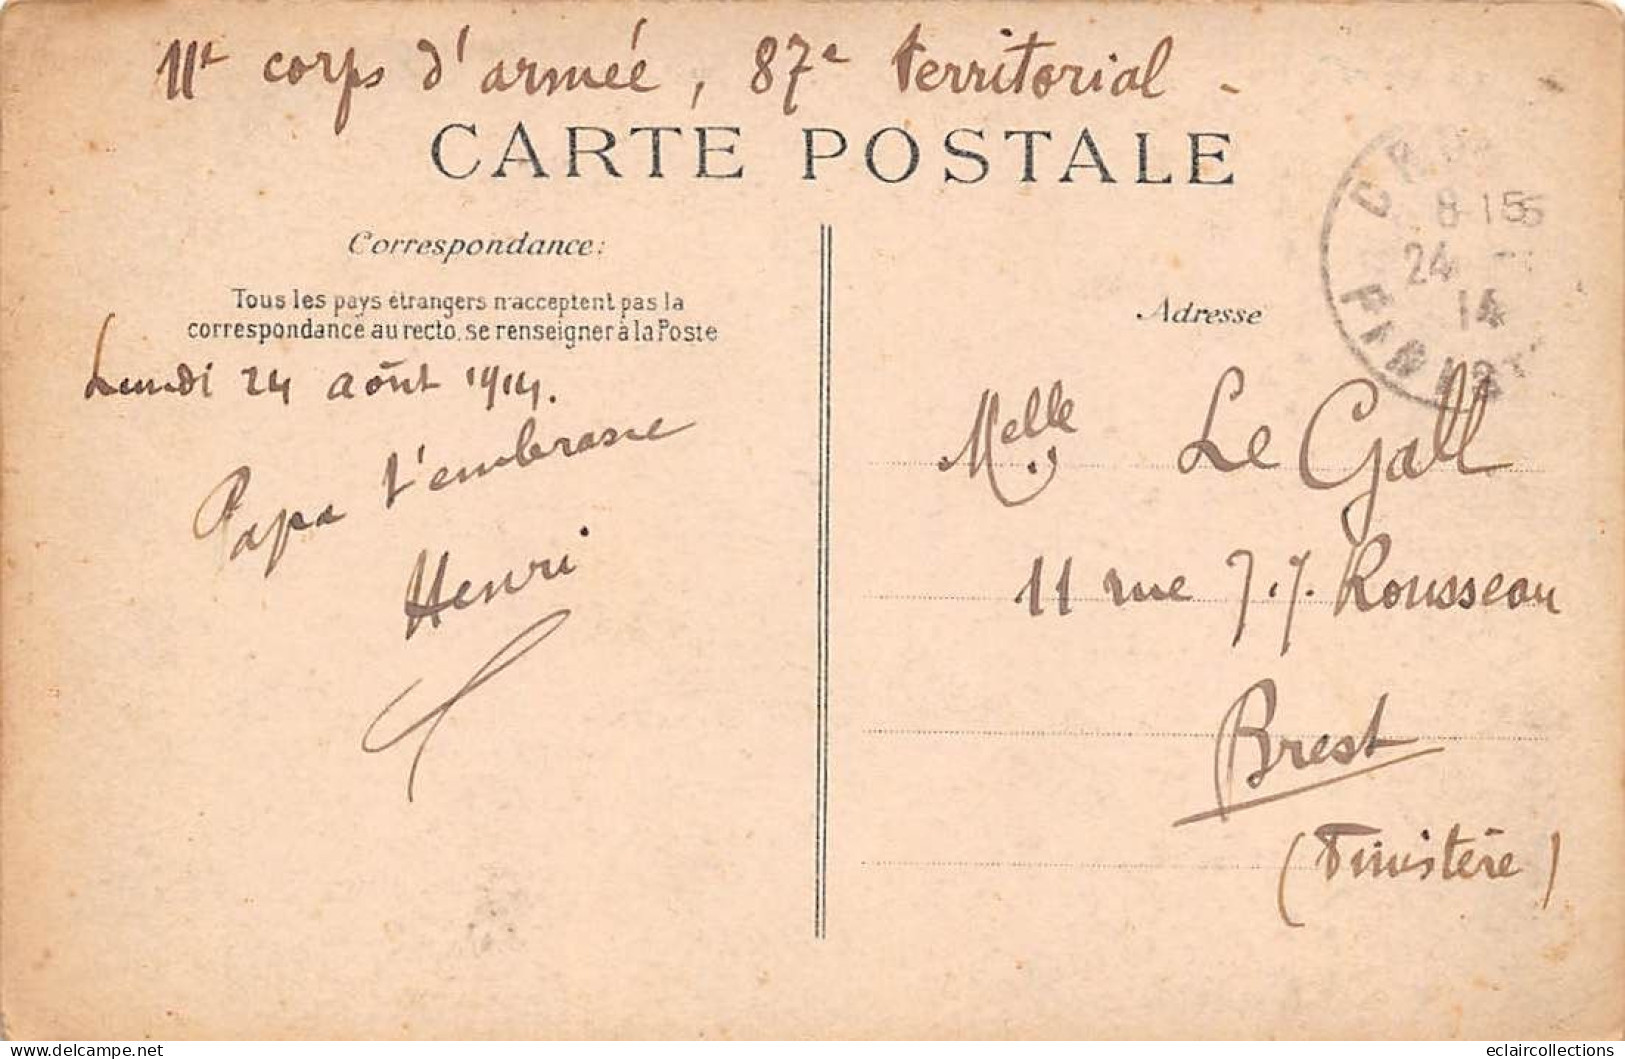 11e corps d'armée, 87e Territorial -
CARTE POSTALE
Correspondance:
Tous les pays étrangers n'acceptent pas la
correspondance au recto, se renseigner à la Poste
Lundi 24 août 1914.
Papa t'embrasse
Henri
Adresse
8-15
24
14
FINIST
Melle Le Gall
11 rue J.J. Rousseau
Brest
(Finistère)
eclaircollections